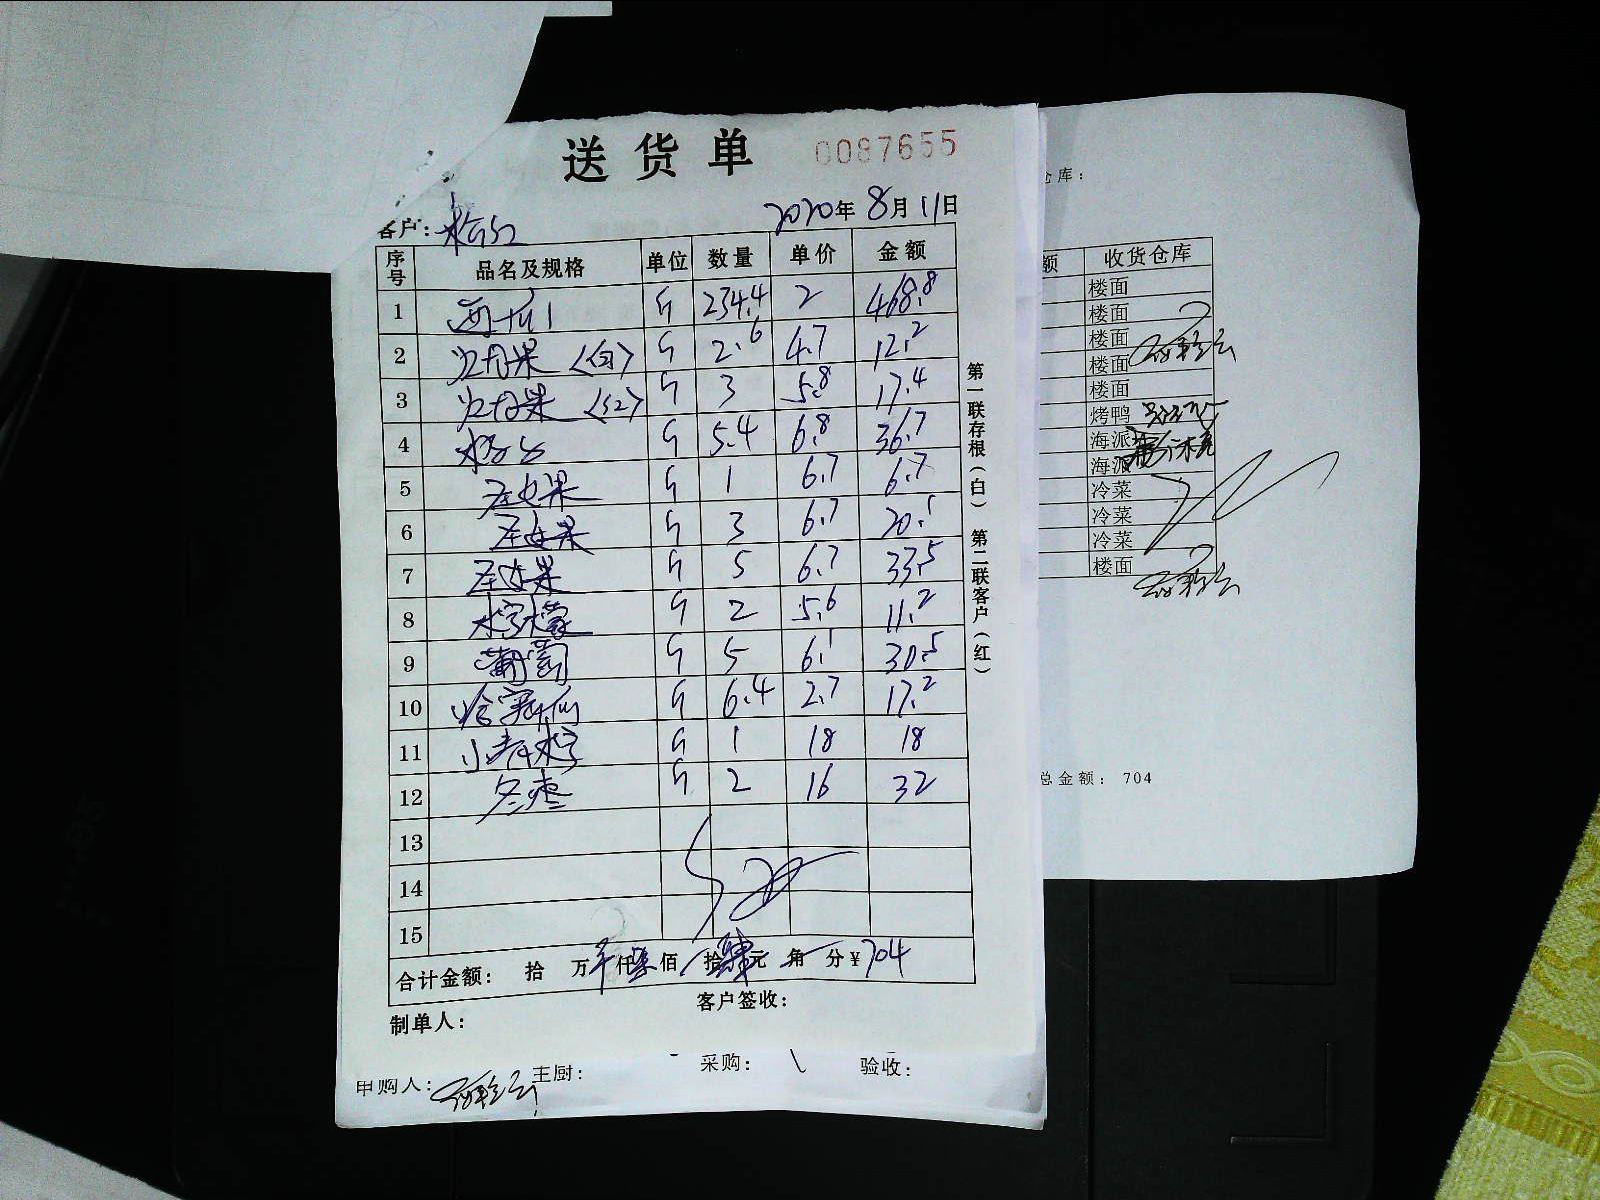 送货单 0087655
客户: 2020年8月11日
序号 品名及规格 单位 数量 单价 金额
1 西瓜 斤 234.4 2 468.8
2 火龙果〈白〉 斤 2.6 4.7 12.2
3 火龙果〈红〉 斤 3 5.8 17.4
4 斤 5.4 6.8 36.7
5 圣女果 斤 1 6.7 6.7
6 圣女果 斤 3 6.7 20.1
7 圣女果 斤 5 6.7 33.5
8 柠檬 斤 2 5.6 11.2
9 葡萄 斤 5 6.1 30.5
10 哈密瓜 斤 6.4 2.7 17.2
11 小青柠 斤 1 18 18
12 冬枣 斤 2 16 32
13
14
15
合计金额: 拾 万 仟柒佰 拾肆元 角 分¥704
制单人: 客户签收:
第一联存根(白) 第二联客户(红)
申购人: 主厨: 采购: 验收:
仓库:
额 收货仓库
楼面
楼面
楼面
楼面
楼面
烤鸭
海派
海派
冷菜
冷菜
冷菜
楼面
总金额: 704